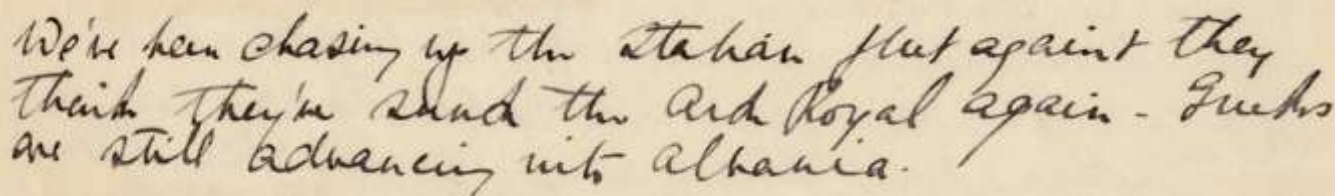 We've been chasing up the Italian fleet again & they
think they've sunk the Ark Royal again - Greeks
are still advancing into Albania.